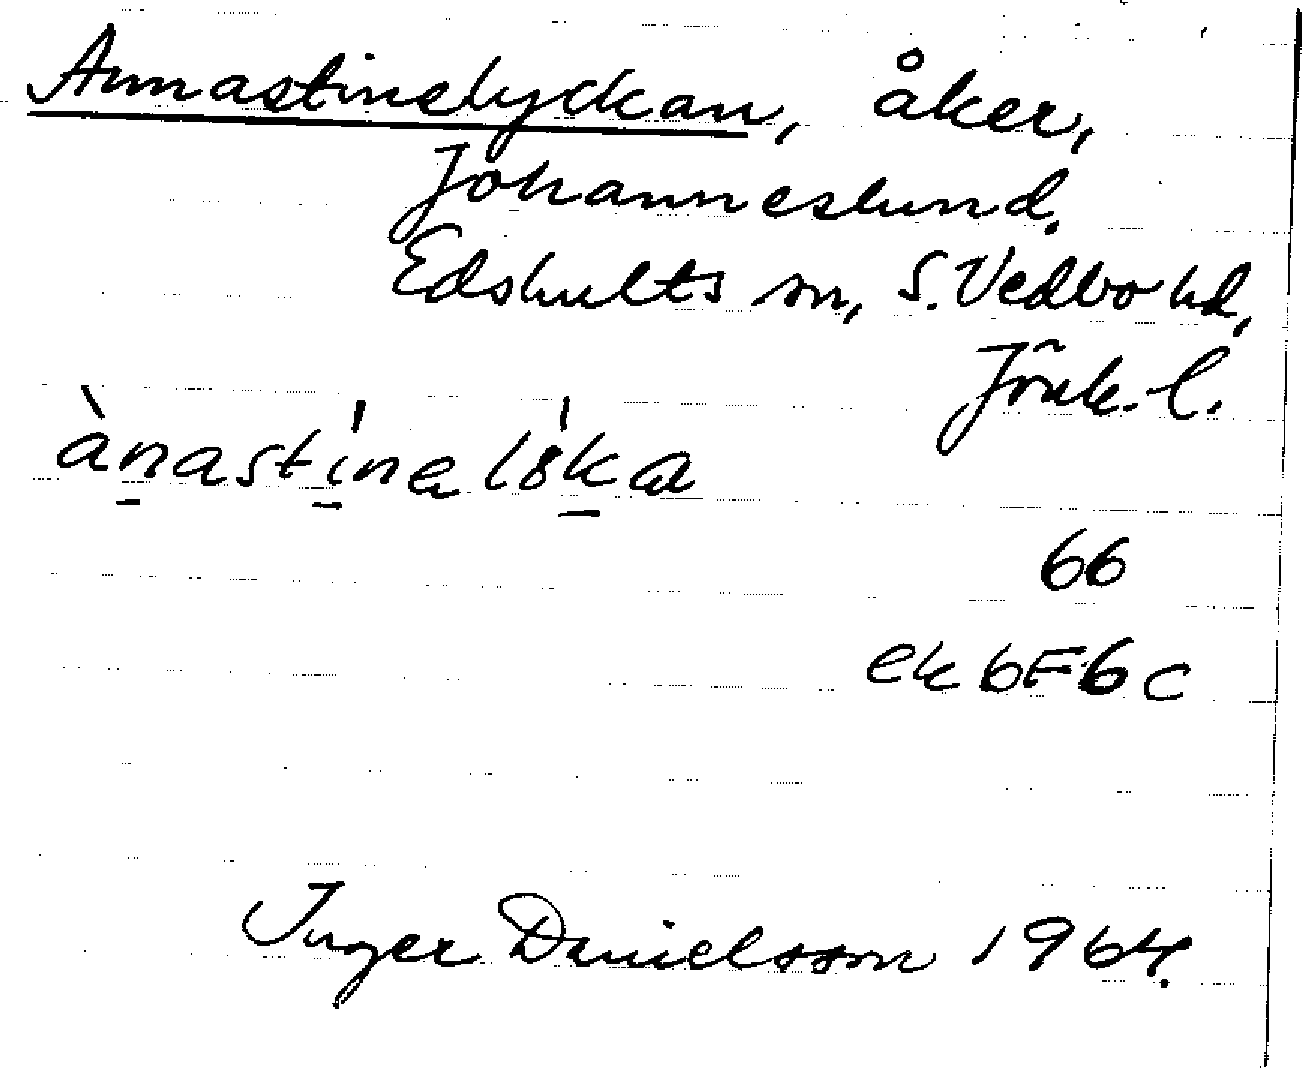 Annastinelyckan, åker,
Johanneslund.
Edshults sn, S. Vedbo hd,
Jönk. l.
66
ek 6F6c
Inger Danielsson 1964.